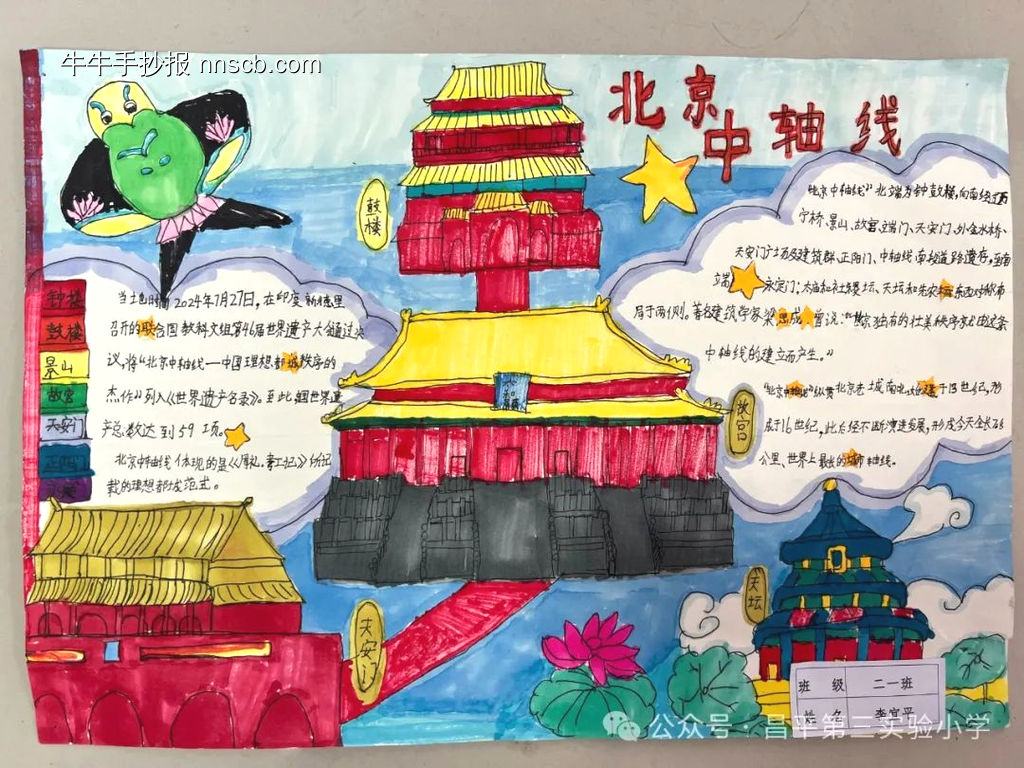 牛牛手抄报 nnscb.com
北京中轴线
鼓楼
钟楼
鼓楼
景山
故宫
天安门
正阳门
当土也时间2024年7月27日,在印度新德里
召开的联合国教科文组第46届世界遗产大会通过决
议,将“北京中轴线——中国理想都城秩序的
杰作”列入《世界遗产名录》。至此,我国世界遗
产总数达到59项。
北京中轴线体现的是《周礼·考工记》所记
载的理想都城范式。
“北京中轴线”北端为钟鼓楼,向南经过万
宁桥、景山、故宫、端门、天安门、外金水桥、
天安门广场及建筑群、正阳门、中轴线南段道路遗存,至南
端永定门;太庙和社稷坛、天坛和先农坛东西对称布
局于两侧。著名建筑学家梁思成曾说:“北京独有的壮美秩序就由这条
中轴线的建立而产生。”
“北京中轴线”纵贯北京老城南北,始建于13世纪,形
成于16世纪,此后经不断演进发展,形成今天全长7.8
公里、世界上最长的城市轴线。
故宫
天安门
天坛
班 级 二一班
姓 名 李宜平
公众号·昌平第三实验小学